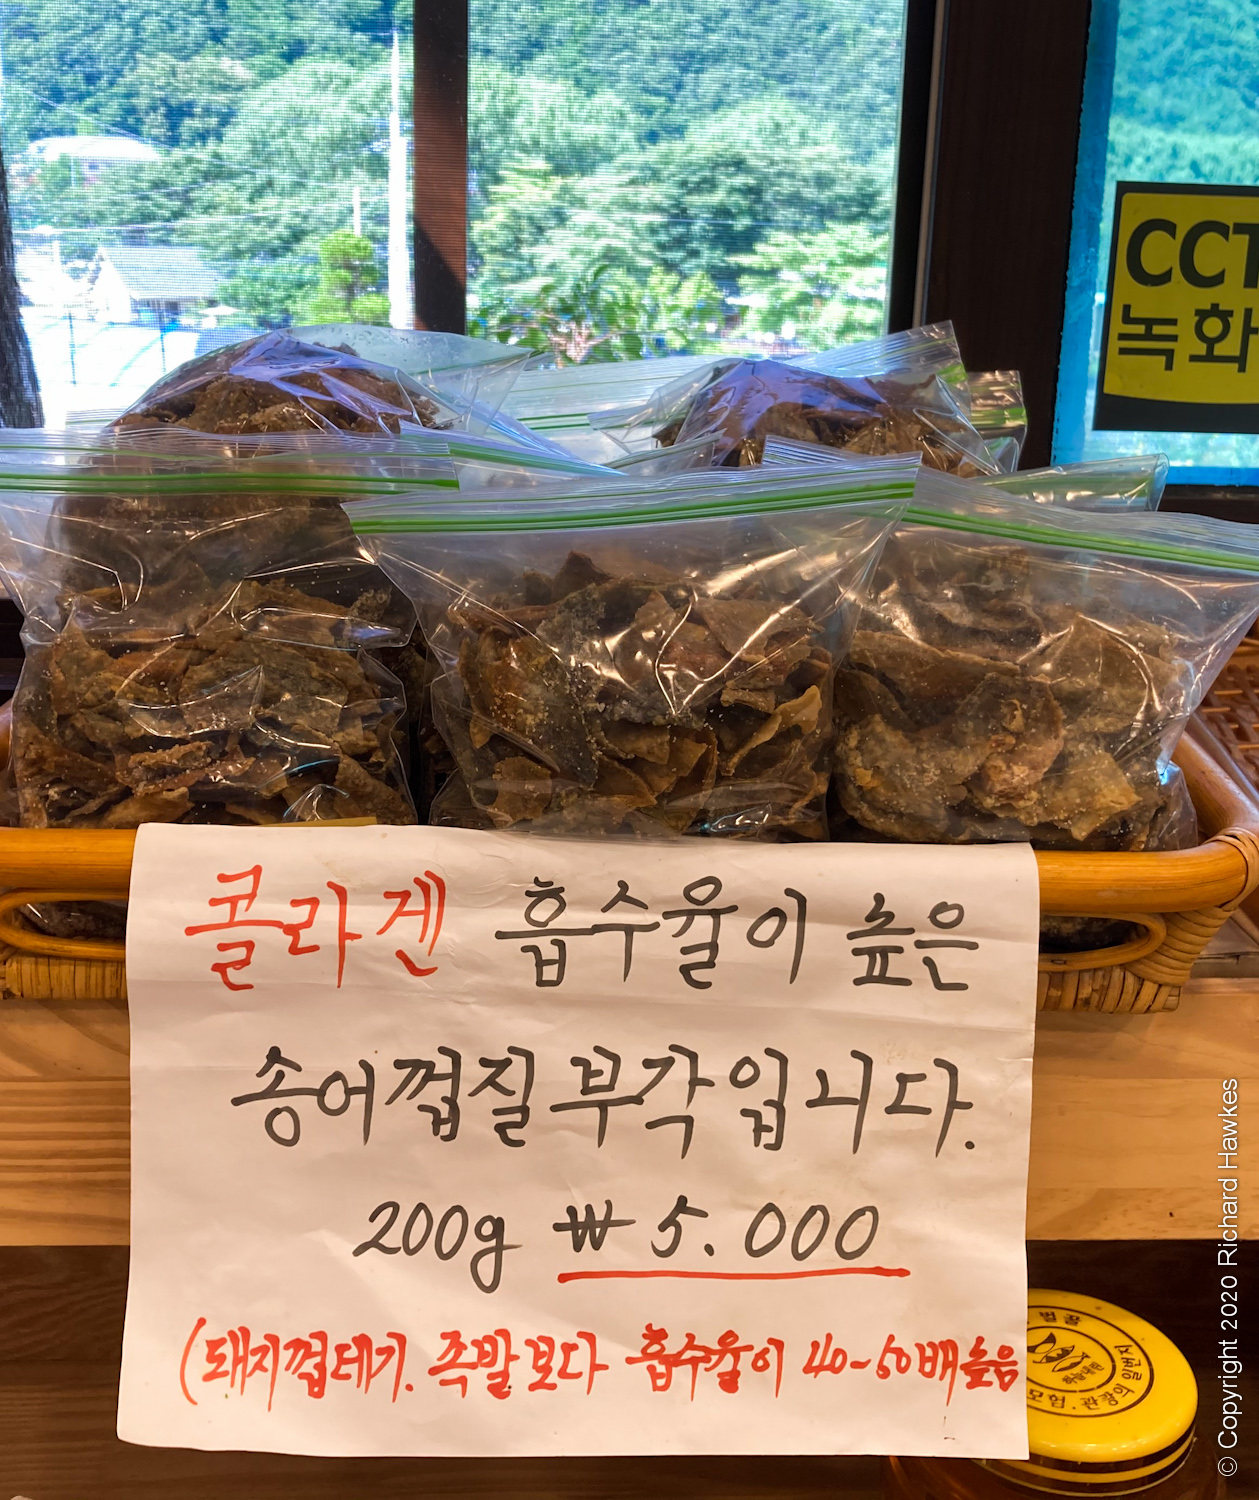 CCT
녹화
콜라겐 흡수율이 높은
송어껍질부각입니다.
200g ₩ 5.000
(돼지껍데기. 족발보다 흡수율이 40~50배높음
벌꿀
모험.관광의 일번지
© Copyright 2020 Richard Hawkes